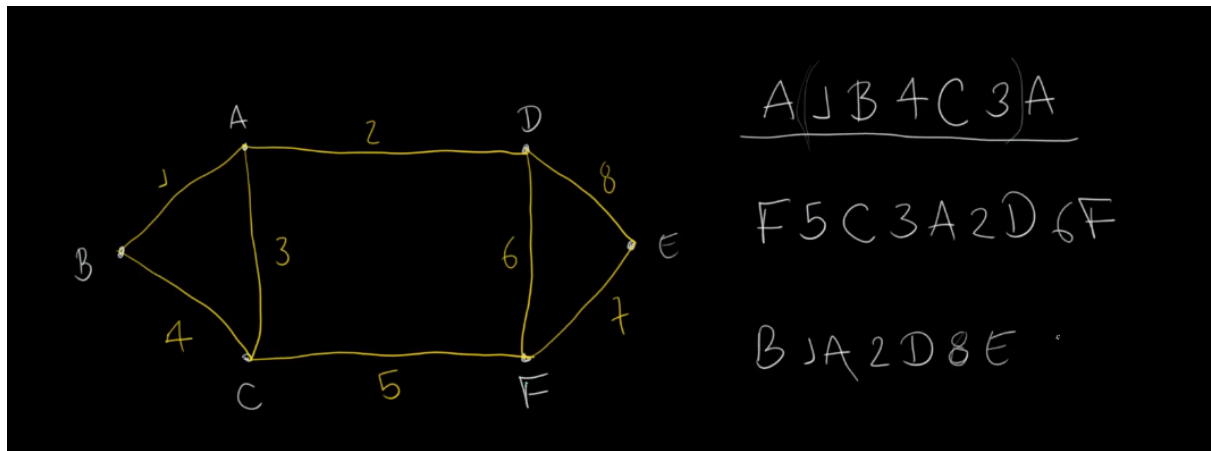 A D
2
1 8
B 3 6 E
4 7
5
C F
A(1B4C3)A
F5C3A2D6F
B1A2D8E